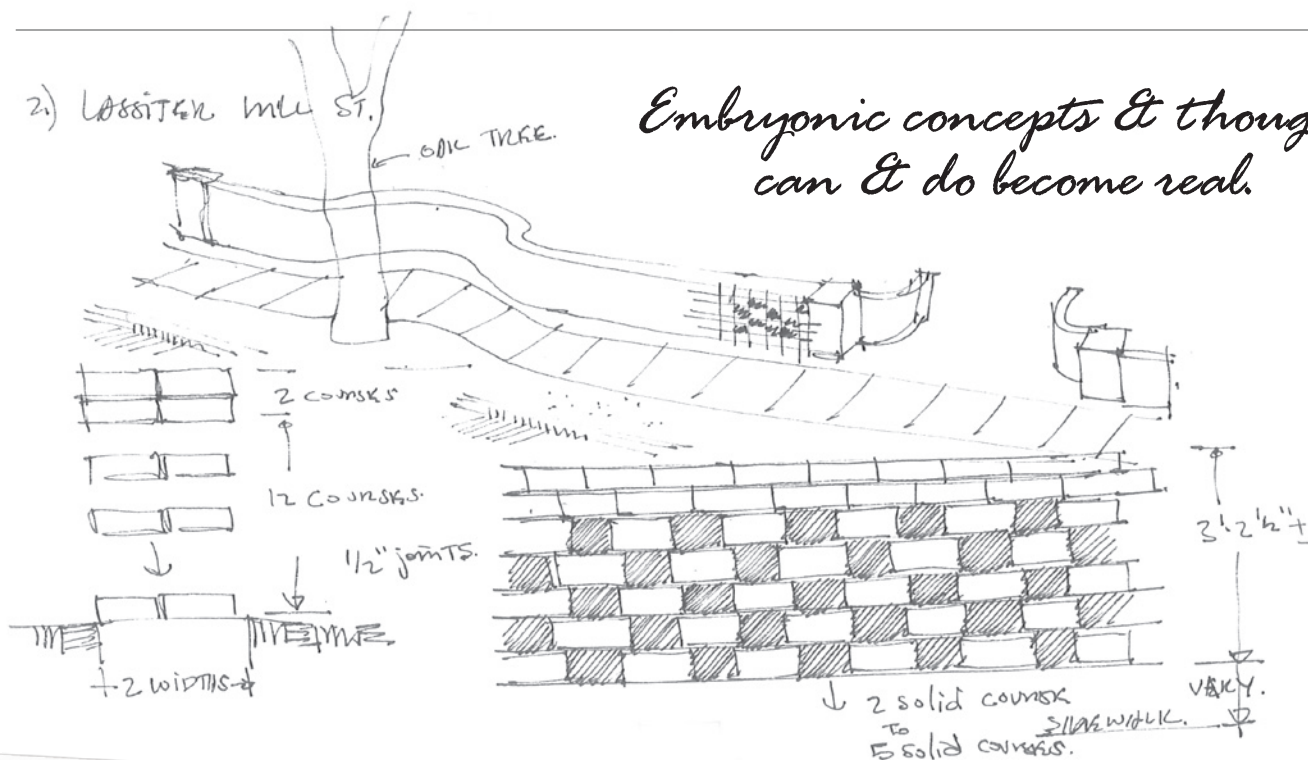 2.) LASSITER MILL ST.
OAK TREE.
Embryonic concepts & thoug
can & do become real.
2 COURSES
12 COURSES.
1/2" joinTS.
2 WIDTHS
3'-2 1/2" ±
VARY.
2 solid COURSE
TO
5 solid COURSES.
SIDEWALK.